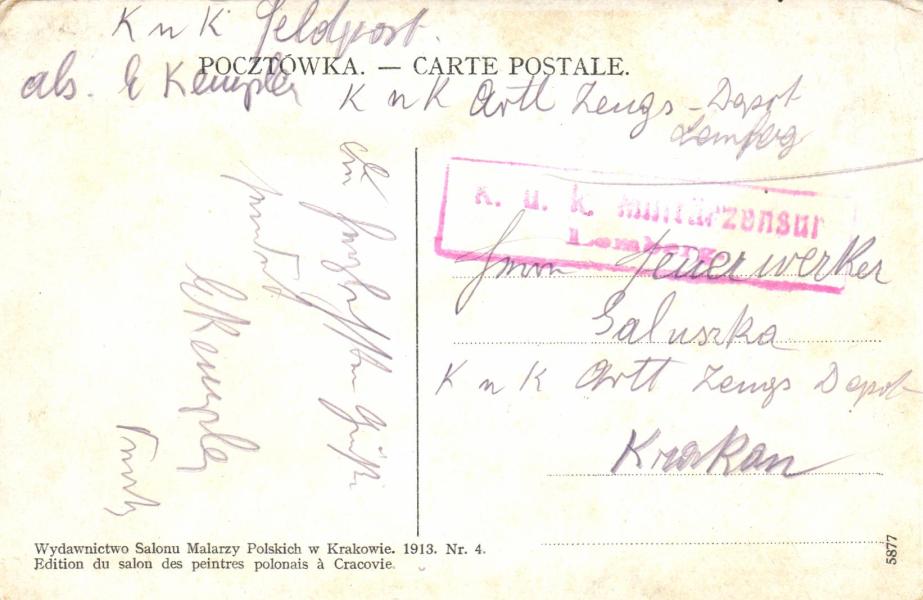 K u K Feldpost.
POCZTÓWKA. — CARTE POSTALE.
abs. E Kempler K u K Artl Zeugs-Depot
Lemberg
K. u. k. Militärzensur
Lemberg
Herrn Feuerwerker
Galuszka
K u K Artl Zeugs Depot
Krakau
Die herzlichsten Grüße
sendet
EKempler
Wydawnictwo Salonu Malarzy Polskich w Krakowie. 1913. Nr. 4.
Edition du salon des peintres polonais à Cracovie.
5877